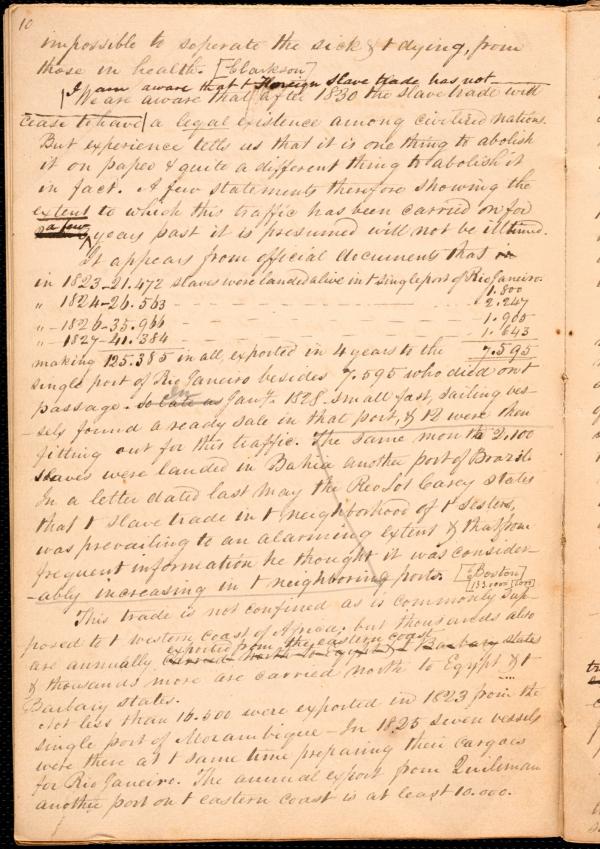 10
impossible to seperate the sick & t dying, from
those in health. [Clarkson]
I am aware that t Foreign slave trade has not
We are aware that after 1830 the slave trade will
cease to have a legal existence among civilized nations.
But experience tells us that it is one thing to abolish
it on paper & quite a different thing to abolish it
in fact. A few statements therefore showing the
extent to which this traffic has been carried on for
a few years past it is presumed will not be illtimed.
It appears from official documents that in
in 1823-21.472 slaves were landed alive in t single port of Rio Janeiro.
1.800
" 1824-26.563 - - - - - 2.247
" - 1826-35.966 - - - - - 1.905
" - 1827-41.384 - - - - - 1.643
making 125.385 in all exported in 4 years to the 7.595
single port of Rio Janeiro besides 7.595 who died on t
passage. So late as In Jany. 1828. small fast, sailing ves-
sels found a ready sale in that port, & 12 were then
fitting out for this traffic. The same month 2.100
slaves were landed in Bahia another port of Brazil
In a letter dated last May the Rev Lot Carey states
that t slave trade in t neighborhood of t Sesters,
was prevailing to an alarming extent & that from
frequent information he thought it was consider-
-ably increasing in t neighboring ports. [Boston]
This trade is not confined as is commonly sup-
posed to t western coast of Africa: but thousands also
exported from the eastern coast
are annually carried north to Egypt & t Barbary states
& thousands more are carried north to Egypt & t
Barbary states.
Not less than 16.500 were exported in 1823 from the
single port of Mozambique - In 1825 seven vessels
were there at t same time preparing their cargoes
for Rio Janeiro. The annual export from Quiliman
another port on t eastern coast is at least 10.000.